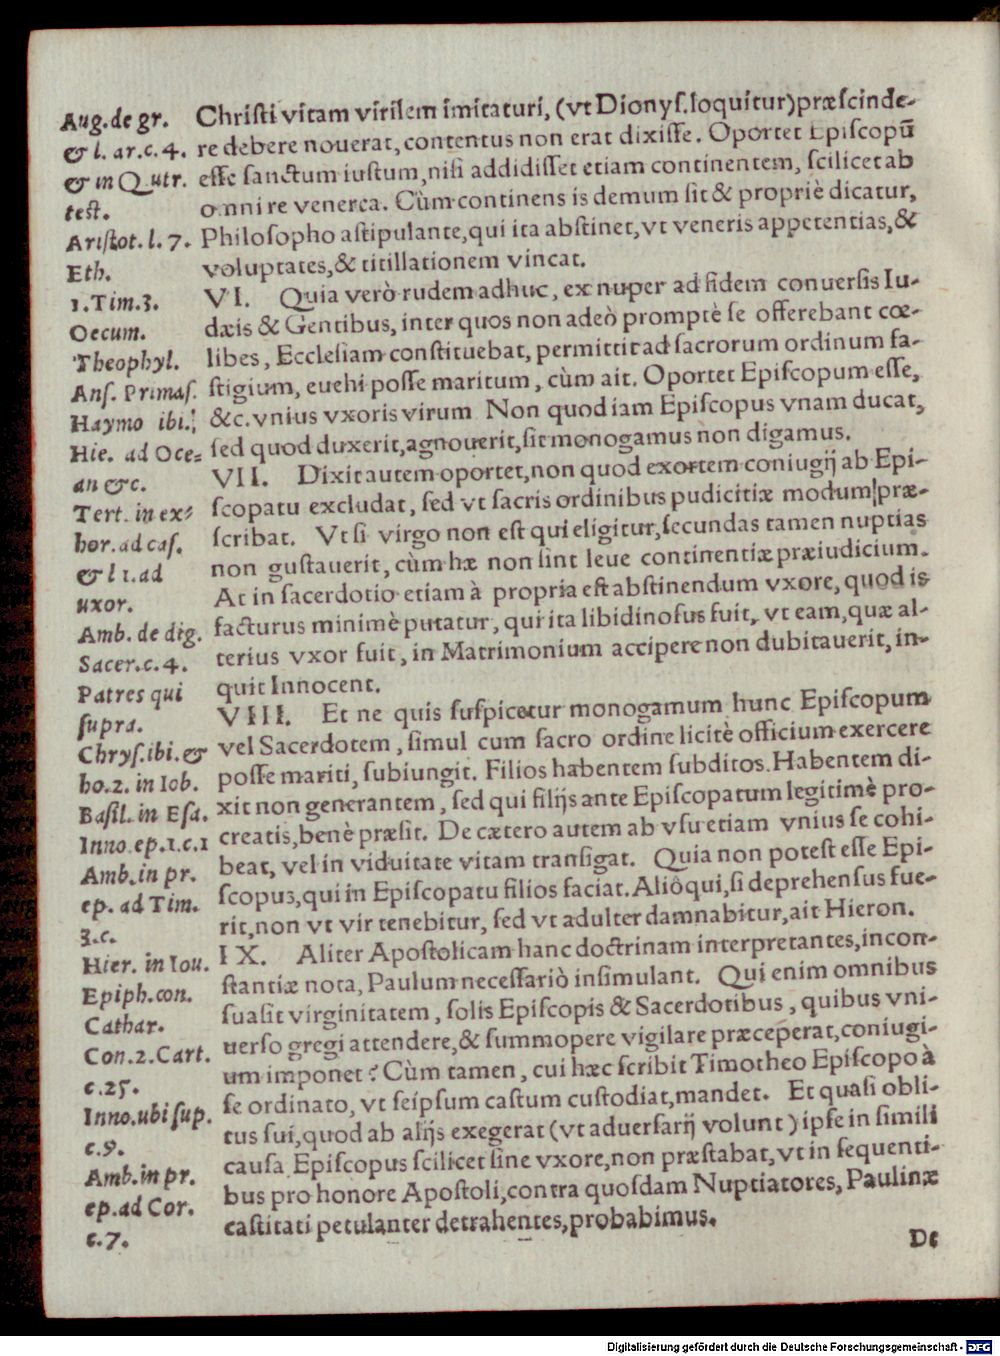 Aug. de gr.
& l. ar. c. 4.
& in Qutr.
test.
Aristot. l. 7.
Eth.
1. Tim. 3.
Oecum.
Theophyl.
Ans. Primas.
Haymo ibi.
Hie. ad Oce=
an &c.
Tert. in ex=
hor. ad cas.
& l 1. ad
uxor.
Amb. de dig.
Sacer. c. 4.
Patres qui
supra.
Chrys. ibi. &
ho. 2. in Iob.
Basil. in Esa.
Inno. ep. 1. c. 1
Amb. in pr.
ep. ad Tim.
3. c.
Hier. in Iou.
Epiph. con.
Cathar.
Con. 2. Cart.
c. 25.
Inno. ubi sup.
c. 9.
Amb. in pr.
ep. ad Cor.
c. 7.
Christi vitam virilem imitaturi, (vt Dionys. loquitur) præscinde-
re debere nouerat, contentus non erat dixisse. Oportet Episcopū
esse sanctum iustum, nisi addidisset etiam continentem, scilicet ab
omni re venerea. Cùm continens is demum sit & propriè dicatur,
Philosopho astipulante, qui ita abstinet, vt veneris appetentias, &
voluptates, & titillationem vincat.
VI. Quia verò rudem adhuc, ex nuper ad fidem conuersis Iu-
dæis & Gentibus, inter quos non adeò promptè se offerebant cœ-
libes, Ecclesiam constituebat, permittit ad sacrorum ordinum fa-
stigium, euehi posse maritum, cùm ait. Oportet Episcopum esse,
&c. vnius vxoris virum Non quod iam Episcopus vnam ducat,
sed quod duxerit, agnouerit, sit monogamus non digamus.
VII. Dixit autem oportet, non quod exortem coniugij ab Epi-
scopatu excludat, sed vt sacris ordinibus pudicitiæ modum præ-
scribat. Vt si virgo non est qui eligitur, secundas tamen nuptias
non gustauerit, cùm hæ non sint leue continentiæ præiudicium.
At in sacerdotio etiam à propria est abstinendum vxore, quod is
facturus minimè putatur, qui ita libidinosus fuit, vt eam, quæ al-
terius vxor fuit, in Matrimonium accipere non dubitauerit, in-
quit Innocent.
VIII. Et ne quis suspicetur monogamum hunc Episcopum
vel Sacerdotem, simul cum sacro ordine licitè officium exercere
posse mariti, subiungit. Filios habentem subditos. Habentem di-
xit non generantem, sed qui filijs ante Episcopatum legitimè pro-
creatis, benè præsit. De cætero autem ab vsu etiam vnius se cohi-
beat, vel in viduitate vitam transigat. Quia non potest esse Epi-
scopus, qui in Episcopatu filios faciat. Aliôqui, si deprehensus fue-
rit, non vt vir tenebitur, sed vt adulter damnabitur, ait Hieron.
IX. Aliter Apostolicam hanc doctrinam interpretantes, incon-
stantiæ nota, Paulum necessariò insimulant. Qui enim omnibus
suasit virginitatem, solis Episcopis & Sacerdotibus, quibus vni-
uerso gregi attendere, & summopere vigilare præceperat, coniugi-
um imponet? Cùm tamen, cui hæc scribit Timotheo Episcopo à
se ordinato, vt seipsum castum custodiat, mandet. Et quasi obli-
tus sui, quod ab alijs exegerat (vt aduersarij volunt) ipse in simili
causa Episcopus scilicet sine vxore, non præstabat, vt in sequenti-
bus pro honore Apostoli, contra quosdam Nuptiatores, Paulinæ
castitati petulanter detrahentes, probabimus.
De
Digitalisierung gefördert durch die Deutsche Forschungsgemeinschaft - DFG